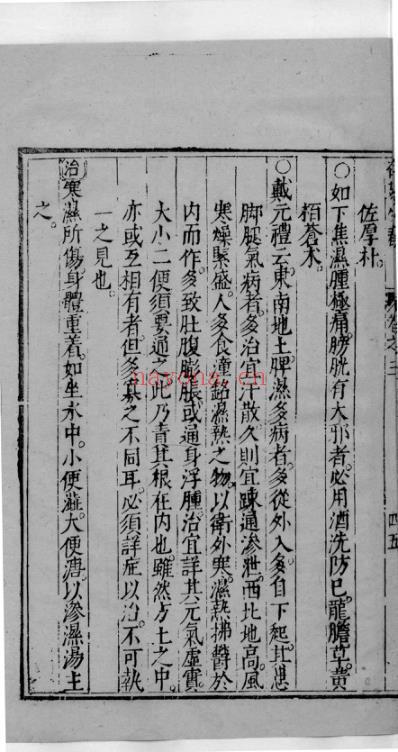 佐厚朴。
○如下焦濕腫極痛膀胱有大邪者必用酒洗防巳龍膽草黄
栢蒼术。
○戴元禮云東南地土脾濕多病者多從外入多自下起其患
脚腿氣病者多治宜汗散久則宜疎通滲泄西北地高風
寒燥緊盛人多食湩酪濕熱之物以衛外寒濕熱拂欝於
内而作多致肚腹膨脹或遍身浮腫治宜詳其元氣虚實
大小二便須要通之此乃責其根在内也雖然方土之中
亦或互相有者但多寡之不同耳必須詳症以治不可執
一之見也。
治寒濕所傷身體重着如坐水中小便澁大便溏以滲濕湯主
之。
卷之三
四五
nayona.cn